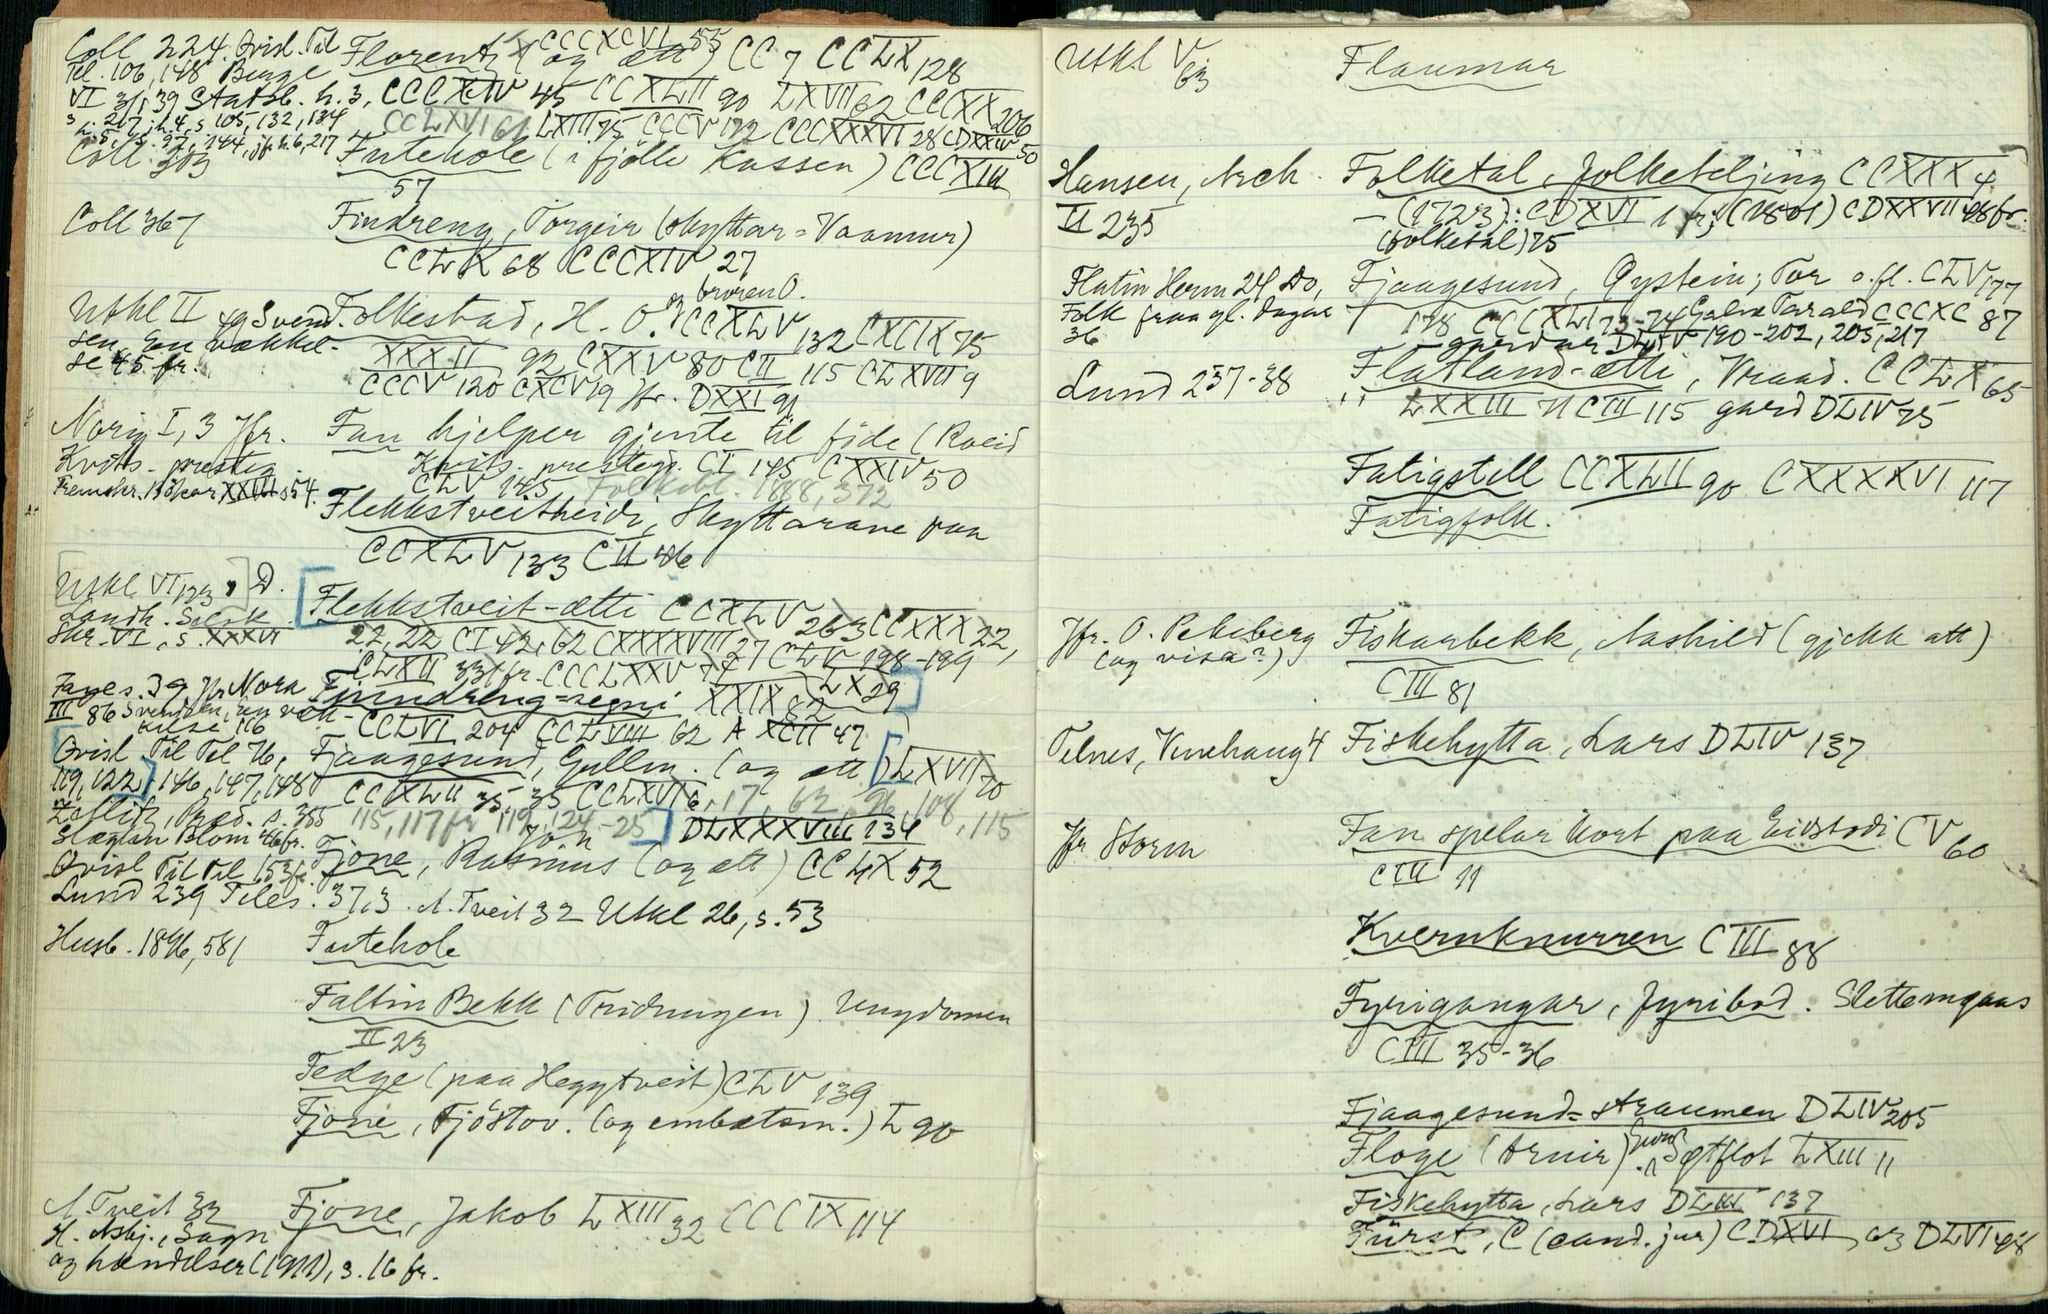 Coll 224. Qvisl. Til Florentz (og ætt) CCCXCVI 55 CC 7 CCLX 128
Tel. 106, 148 Berge
VI 31, 39 Statsb. h. 3, CCCXCIV 45 CCXLII 90 LXVII 62 CCCXX 206
s. 217, h. 4, s 105, 132, 134 CCLXVI 61 LXIII 75 CCCV 172 CCCXXXVI 28 CDXXIV 50
h. 5, s. 97, 144, jfr h. 6, 217
Coll. 303 Futehole (i fjölli Kassen) CCCXIII
57
Coll 367 Findreng, Torgeir (skyttar = Vaamur)
CCLX 68 CCCXIV 27
Utkl II og Svend- Folkestad, H. O. og broren O. CCXLV 132 CXCIX 75
sen, En vækkel- XXXII 92 CXXV 80 CII 115 CLXVII 9
se 45 fr. CCCV 120 CXCV 19 Jfr. DXXI 91
Norig I, 3 Jfr. Fan hjelper gjente til föde (Roeid
Kvits. prestg. Kvits. prestegj. CI 145 CXXIV 50
Fremskr. Bökar XXIII s 54. CLV 145 Folkebl. 1888, 372
Flekkstveitheidi, Skyttarane paa
CCXLV 133 CII 46
Utkl VI 123, D. Flekkstveit-ætti CCXLV 263 CCXXX 22,
Landh. Selsk.
Skr. VI, s. XXXVI 22, 22 CI 42, 62 CXXXXVIII 27 CLV 198-199
CLXII 33 fr. CCCLXXV 77 LX 29
Faye s. 39 Jfr Nora Finndreng=segni XXIX 82
III 86 Svendsen, En væk- CCLVI 204 CCLVIII 62 A XCII 47
kelse 116
Qvisl. Til Tel 76, Fjaagesund, Gullm. (og ætt) LXVII 70
119, 122, 146, 147, 148 CCXLII 35, 35 CCLXVI 6, 17, 62, 96, 108, 115
Præd. s. 355 115, 117 fr 119, 124-25 DLXXXVIII 134
Slægten Blom 46 fr. Jon
Qvisl Til Tel 153 fr Fjone, Rasmus (og ætt) CCLX 52
Lund 239 Teles. 37, 3. A. Tveit 32 Utkl 26, s. 53
Husb. 1896, 581 Futehole
Faltin Bekk (Tridningen) Ungdomen
II 23
Fedge (paa Heggtveit) CLV 139
Fjone, Fjöstov. (og embætsm.) L 90
A. Tveit 32 Fjone, Jakob LXIII 32 CCCIX 114
H. Asbj., Sagn
og hændelser (1911), s. 16 fr.
Utkl V 63 Flaumar
Hansen, Arch. Folketal, folketeljing CCXXX 4
II 235 — (1723): CDXVI 1 fr; (1801) CDXXVII 48 fr.
(folketal) 75
Flatin Herm 24 Do, Fjaagesund, Öystein; Tor o. fl. CLV 177
Folk fraa gl. Dagar 178 CCCXLI 73-74 Galne Tarald CCCXC 87
36 gardar DLIV 190-202, 205, 217
Lund 237-38 Flatland-ætti, Vraad. CCLX 65
LXXIII 71 CIII 115 gard DLIV 75
Fatigstell CCXLII 90 CXXXXVI 117
Fatigfolk.
Jfr. O. Pekeberg Fiskarbekk, Aashild (gjekk att)
(og visa?) CIII 81
Telnes, Vinehaug 4 Fiskehytta, Lars DLIV 137
Jfr Storm Fan spelar kort paa Eidstodi CV 60
CIII 11
Kvernknurren CIII 88
Fyrigangar, fyribod. Slettemaas
CIII 35-36
Fjaagesund=straumen DLIV 205
Floge (Arnir) i Sætflot LXIII 11
Fiskehytta, Lars DLIV 137
Fürst, C (cand. jur) CDXVI 63 DLVI 48